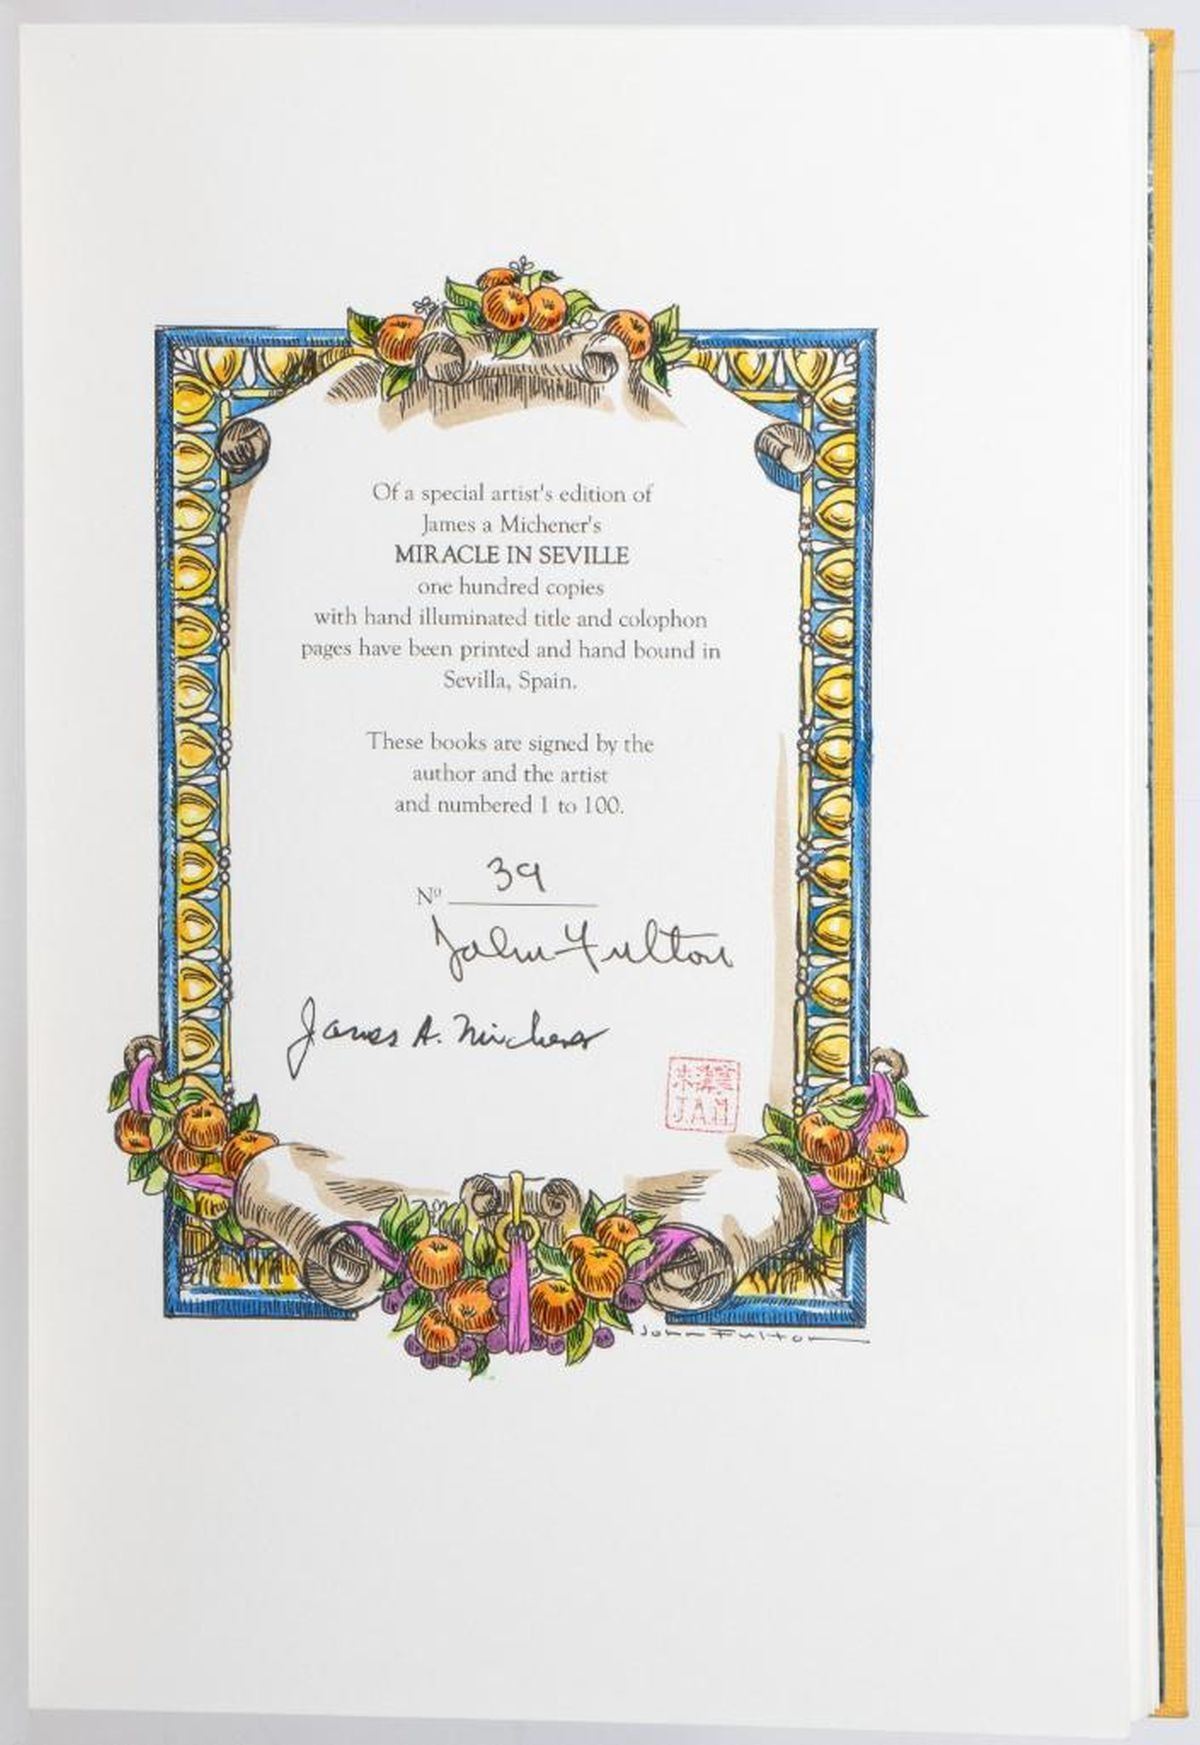 Of a special artist's edition of
James a Michener's
MIRACLE IN SEVILLE
one hundred copies
with hand illuminated title and colophon
pages have been printed and hand bound in
Sevilla, Spain.
These books are signed by the
author and the artist
and numbered 1 to 100.
Nº 39
John Fulton
James A. Michener
J.A.M.
John Fulton